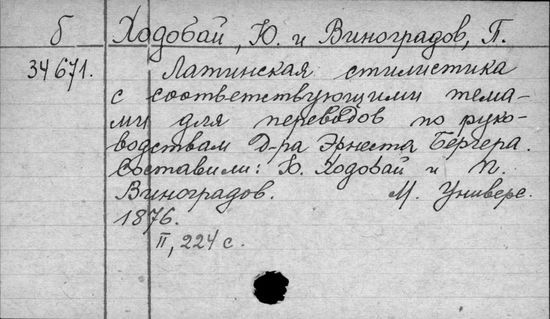 б Ходобай, Ю. и Виноградов, П.
34671. Латинская стилистика
с соответствующими тема-
ми для переводов по руко-
водствам Д-ра Эрнеста Бергера.
Составили: Ю. Ходобай и П.
Виноградов. М. Универс.
1876.
II, 224 с.